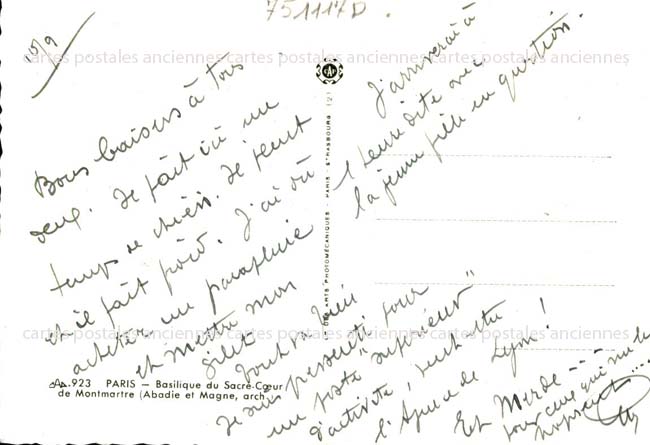 751117D.
15/9
cartes postales anciennes cartes postales anciennes cartes postales anciennes
Bons baisers à tous
deux. Il fait ici un
temps de chien. Il pleut
et il fait froid. J'ai dû
acheter un parapluie
et mettre mon
gilet
Tout va bien
Je suis pressenti pour
un poste "supérieur"
d'activité,
l'Agence de Lyon !
Et Merde
pour ceux qui ne le
J'arriverai à
l'heure dite avec
la jeune fille en question.
cartes postales anciennes cartes postales anciennes cartes postales anciennes
LES ARTS PHOTOMÉCANIQUES - PARIS - STRASBOURG (2)
923 PARIS — Basilique du Sacré-Cœur
de Montmartre (Abadie et Magne, arch